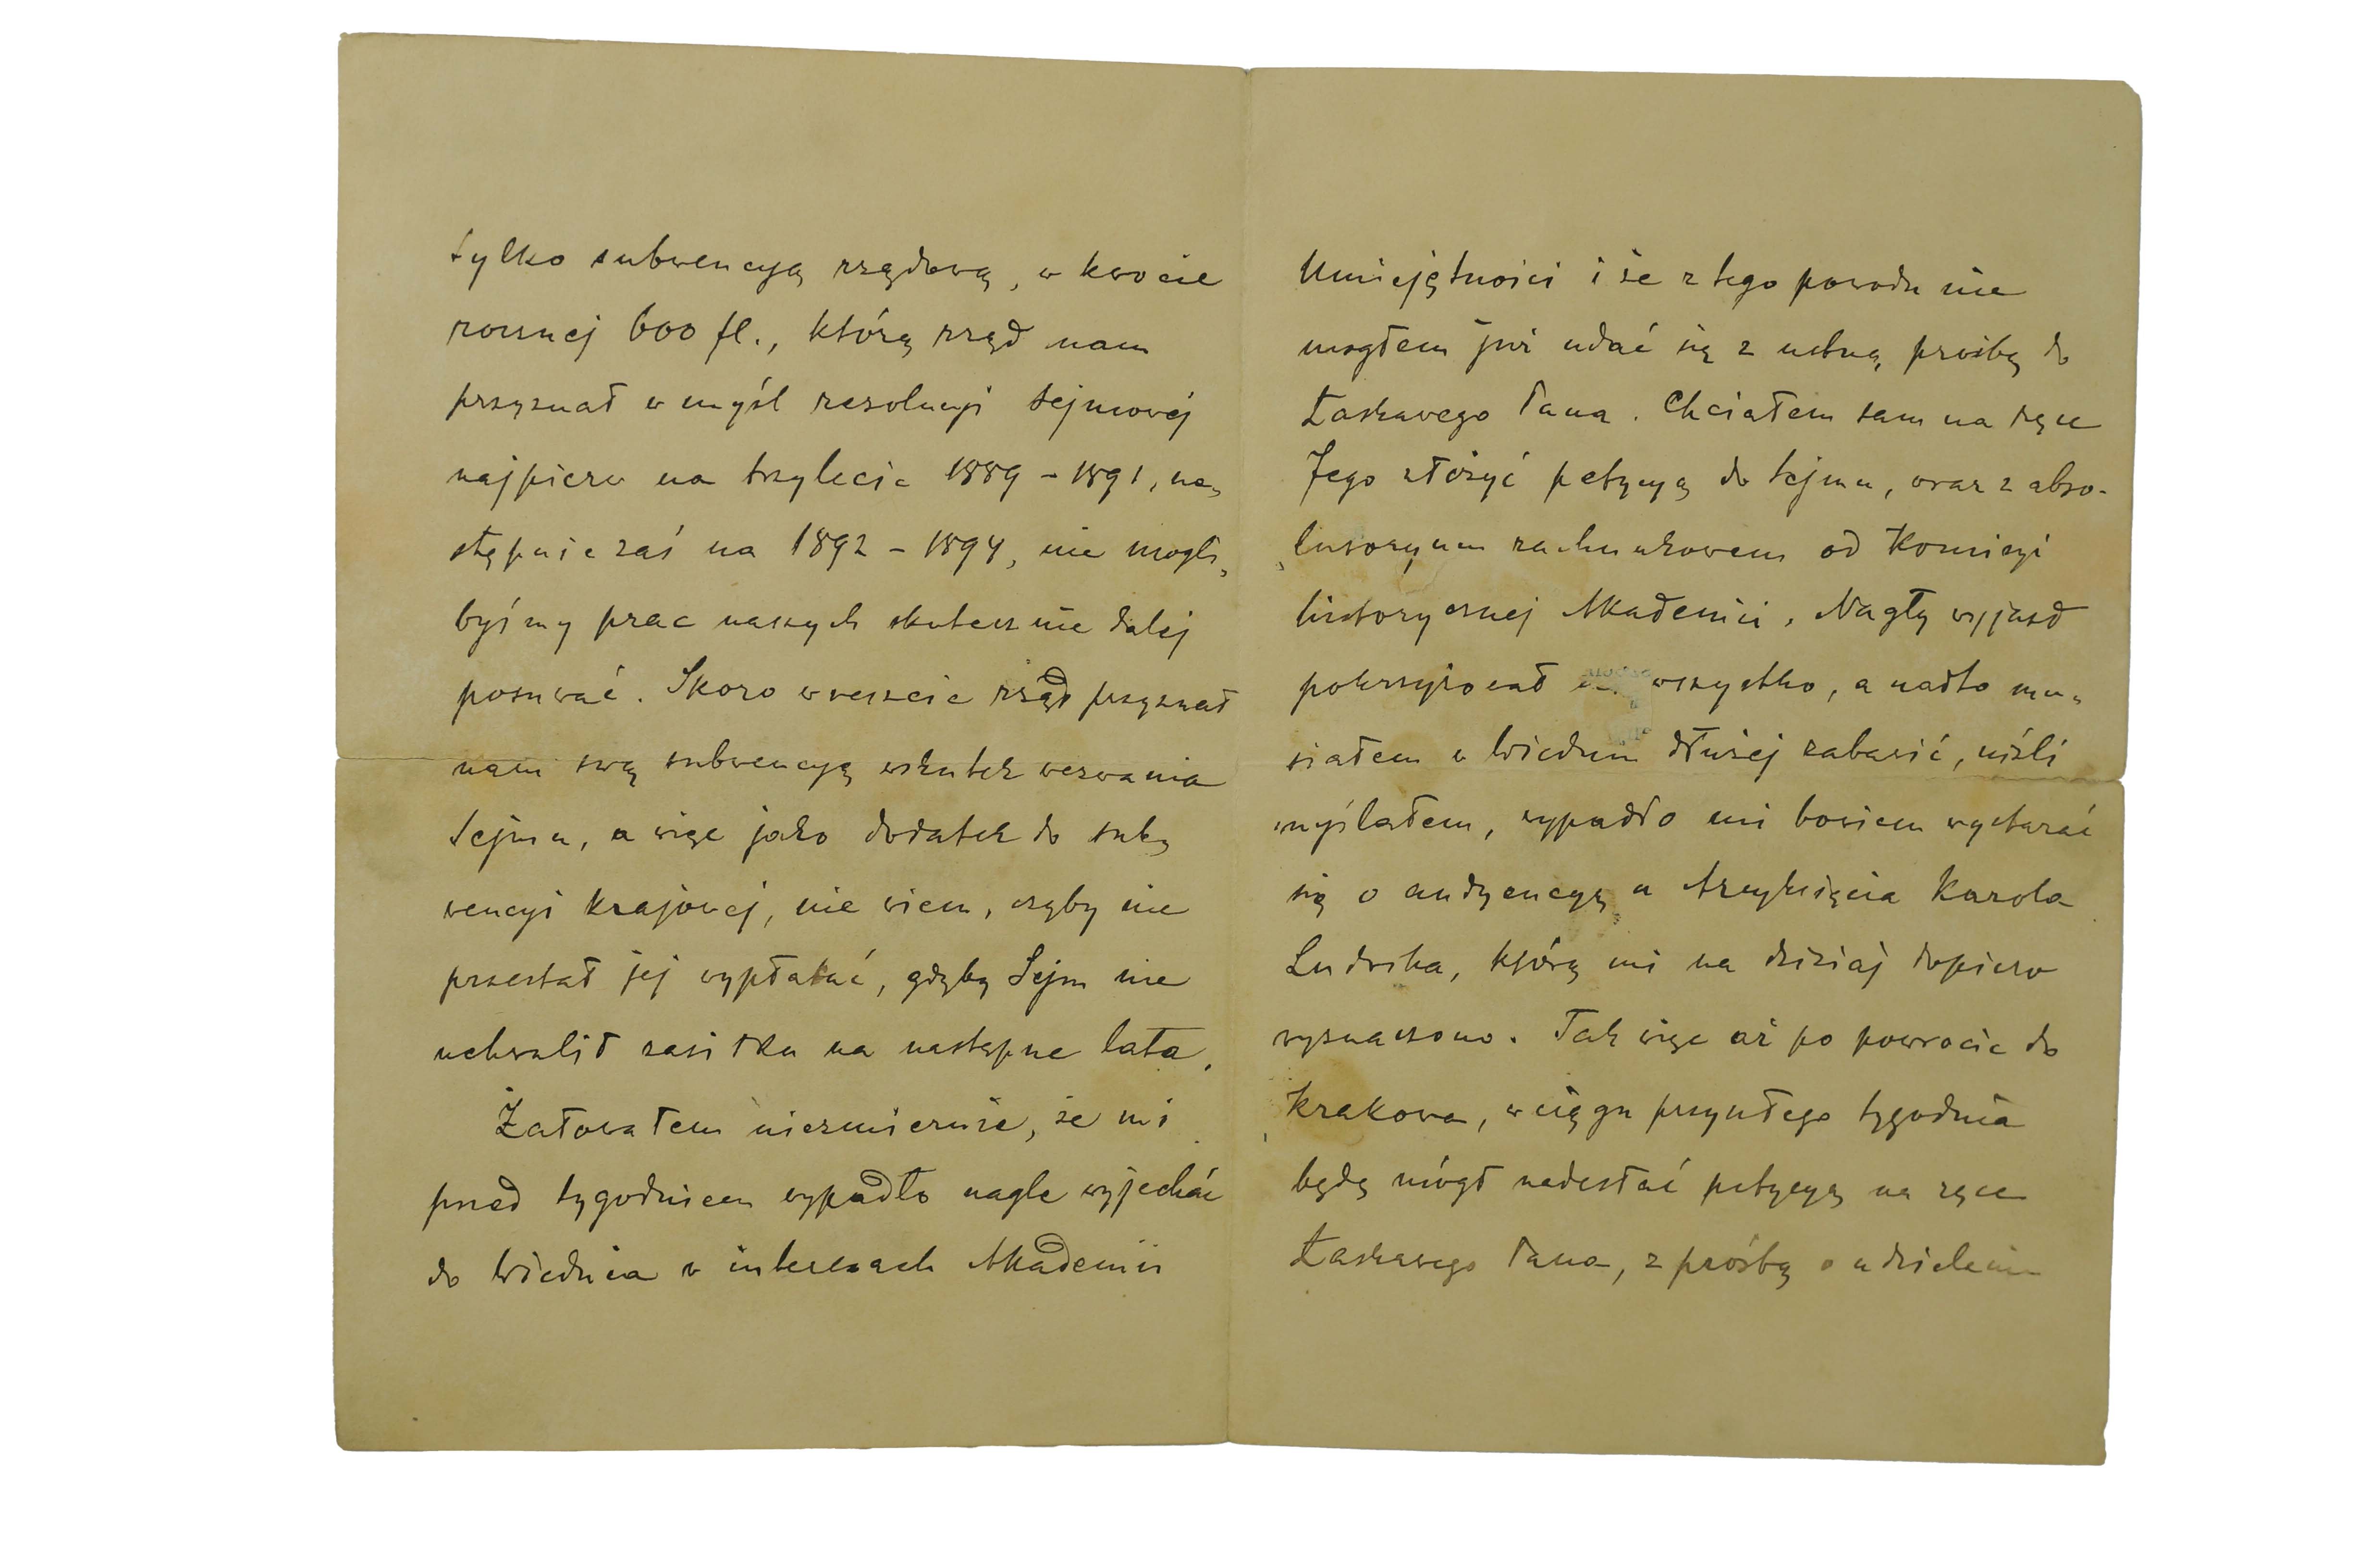 tylko subwencyą rządową, w kwocie
rocznej 600 fl., którą rząd nam
przyznał w myśl rezolucyi sejmowéj
najpierw na trzylecie 1889 - 1891, na„
stępnie zaś na 1892 - 1894, nie mogli„
byśmy prac naszych skutecznie daléj
posuwać. Skoro wreszcie rząd przyznał
nam swą subwencyą wskutek wezwania
Sejmu, a więc jako dodatek do sub„
wencyi krajowéj, nie wiem, czyby nie
przestał jéj wypłacać, gdyby Sejm nie
uchwalił zasiłku na następne lata.
Żałowałem niezmiernie, że mi
przed tygodniem wypadło nagle wyjechać
do Wiednia w interesach Akademii
Umiejętności i że z tego powodu nie
mogłem już udać się z ustną prośbą do
Łaskawego Pana. Chciałem sam na ręce
Jego złożyć petycyą do Sejmu, wraz z abso-
„lutoryum rachunkowem od Komisyi
historycznej Akademii. Nagły wyjazd
pokrzyżował wszystko, a nadto mu„
siałem w Wiedniu dłużéj zabawić, niźli
myślałem, wypadło mi bowiem wystarać
się o audyencyą u Arcyksięcia Karola
Ludwika, którą mi na dzisiaj dopiero
wyznaczono. Tak więc aż po powrocie do
Krakowa, w ciągu przyszłego tygodnia
będę mógł nadesłać petycyą na ręce
Łaskawego Pana, z prośbą o udzielenie